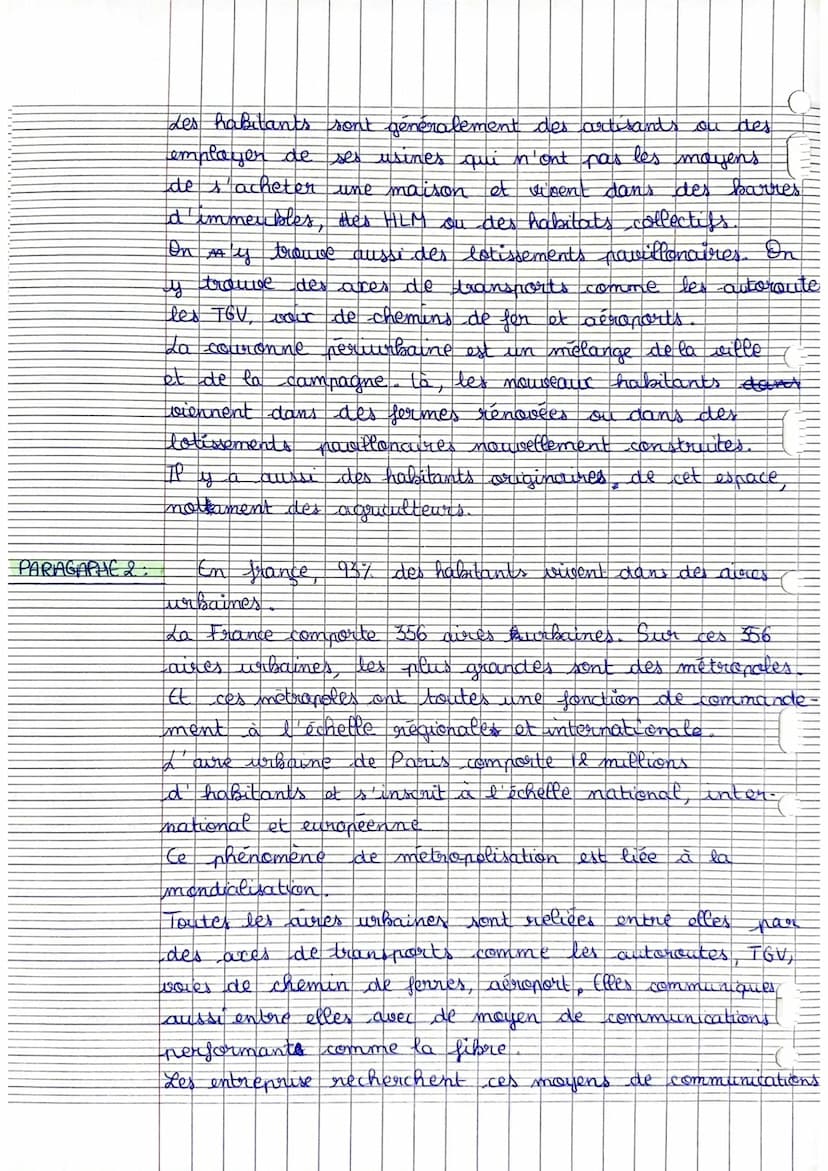 Les habitants sont généralement des artisants ou des
employer de ses usines qui n'ont pas les moyens
de s'acheter une maison et vivent dans des barres
d'immeubles, des HLM ou des habitats collectifs.
On y trouve aussi des lotissements pavillonaires. On
y trouve des axes de transports comme les autoroute
les TGV, voix de chemins de fer et aéroports.
La couronne périurbaine est un mélange de la ville
et de la campagne. Là, les nouveaux habitants dans
viennent dans des fermes rénovées ou dans des
lotissements pavillonaires nouvellement construites.
Il y a aussi des habitants originaires, de cet espace,
nottament des agriculteurs.
PARAGAPHE 2 : En france, 93% des habitants vivent dans des aires
urbaines.
La France comporte 356 aires urbaines. Sur ces 356
aires urbaines, les plus grandes sont des métropoles.
Et ces métropoles ont toutes une fonction de commande-
ment à l'échelle régionales et internationale.
L'aire urbaine de Paris comporte 12 millions
d'habitants et s'inscrit à l'échelle national, inter-
national et européenne
Ce phénomène de métropolisation est liée à la
mondialisation.
Toutes les aires urbaines sont reliées entre elles par
des axes de transports comme les autoroutes, TGV,
voies de chemin de ferres, aéroport, Elles communiques
aussi entre elles avec de moyen de communications
performants comme la fibre.
Les entreprise recherchent ces moyens de communications